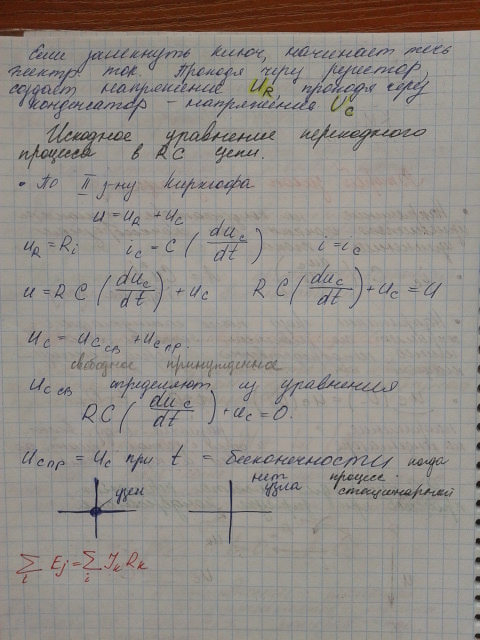 Если замкнуть ключ, начинает течь
электр. ток. Проходя через резистор,
создаёт напряжение U_R, проходя через
конденсатор - напряжение U_C
Исходное уравнение переходного
процесса в RC цепи.
• По II з-ну Кирхгофа
u = u_R + u_C
u_R = Ri   i_C = C (du_C/dt)   i = i_C
u = RC (du_C/dt) + u_C   RC (du_C/dt) + u_C = u
u_C = u_C св + u_C пр.
свободное принужденное
u_C св определяют из уравнения
RC (du_C/dt) + u_C = 0.
u_C пр = u_C при t = бесконечности когда
узел   нет узла   процесс стационарный
∑_i E_j = ∑_i I_k R_k